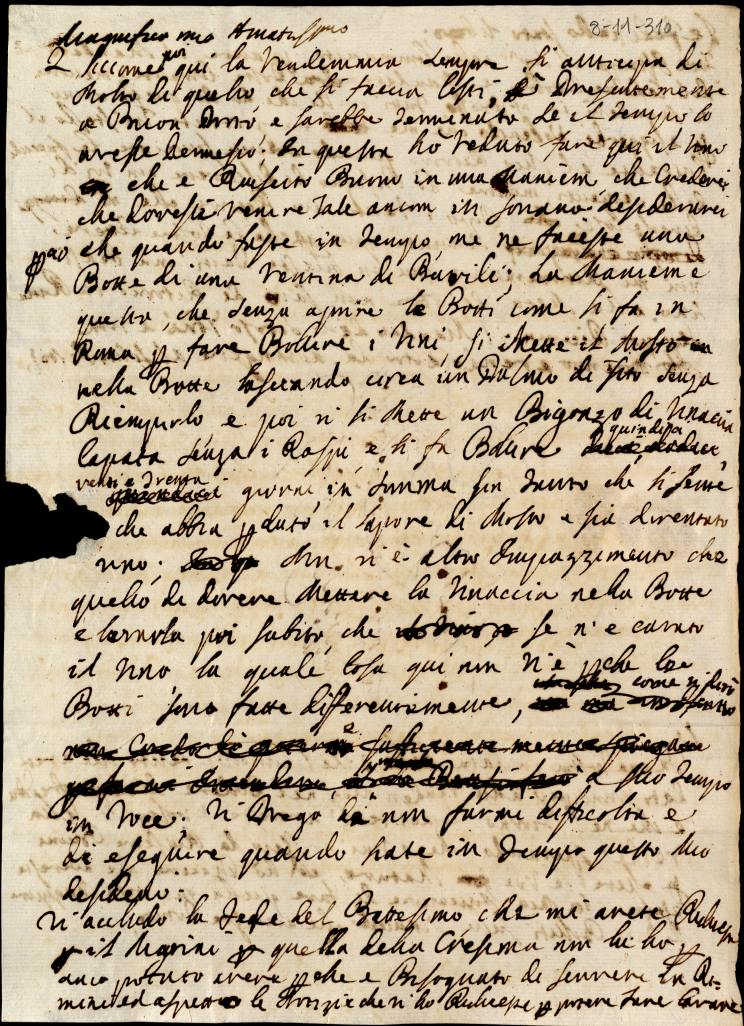 8-11-310
Magnifico mio Amatissimo
2 Siccome poi qui la Vendemmia sempre si anticipa di
Molto di quello che si faccia costì, è Presentemente
a Buon Porto e sarebbe terminata se il tempo lo
avesse permesso: In questa hò veduto fare qui il Vino
che è Riuscito Buono in una Maniera, che Crederei
che dovesse venire tale ancora in Soriano: desiderarei
che quando foste in tempo, me ne faceste una
Botte di una Ventina di Barili; La Maniera è
questa, che senza aprire le Botti come si fa in
Roma p fare Bollire i Vini si Mette il Mosto
nella Botte lasciando circa un Palmo di sito senza
Riempirlo e poi vi si Mette un Bigonzo di Vinaccia
Capata senza i Raspi, e si fa Bollire quindici
venti e trenta giorni in somma sin tanto che si sente
che abbia pduto il sapore di Mosto e sia diventato
vino; Non vi è altro Impazzimento che
quello di dovere Mettare la Vinaccia nella Botte
e levarla poi subito, che se n'è cavato
il Vino la quale Cosa qui non v'è pche le
Botti sono fatte differentemente, come vi dirò
a Mio tempo
in Voce. Vi Prego à non farmi difficoltà e
di eseguire quando siate in tempo questo Mio
desiderio:
Vi accludo la Fede del Battesimo che mi avete Richiesta
p il Marini p quella della Cresima non lì ho p
anco potuto avere pche è Bisognato di scrivere in Ri-
mini ed aspetto le Notizie che vi ho Richieste p potere fare Cavare